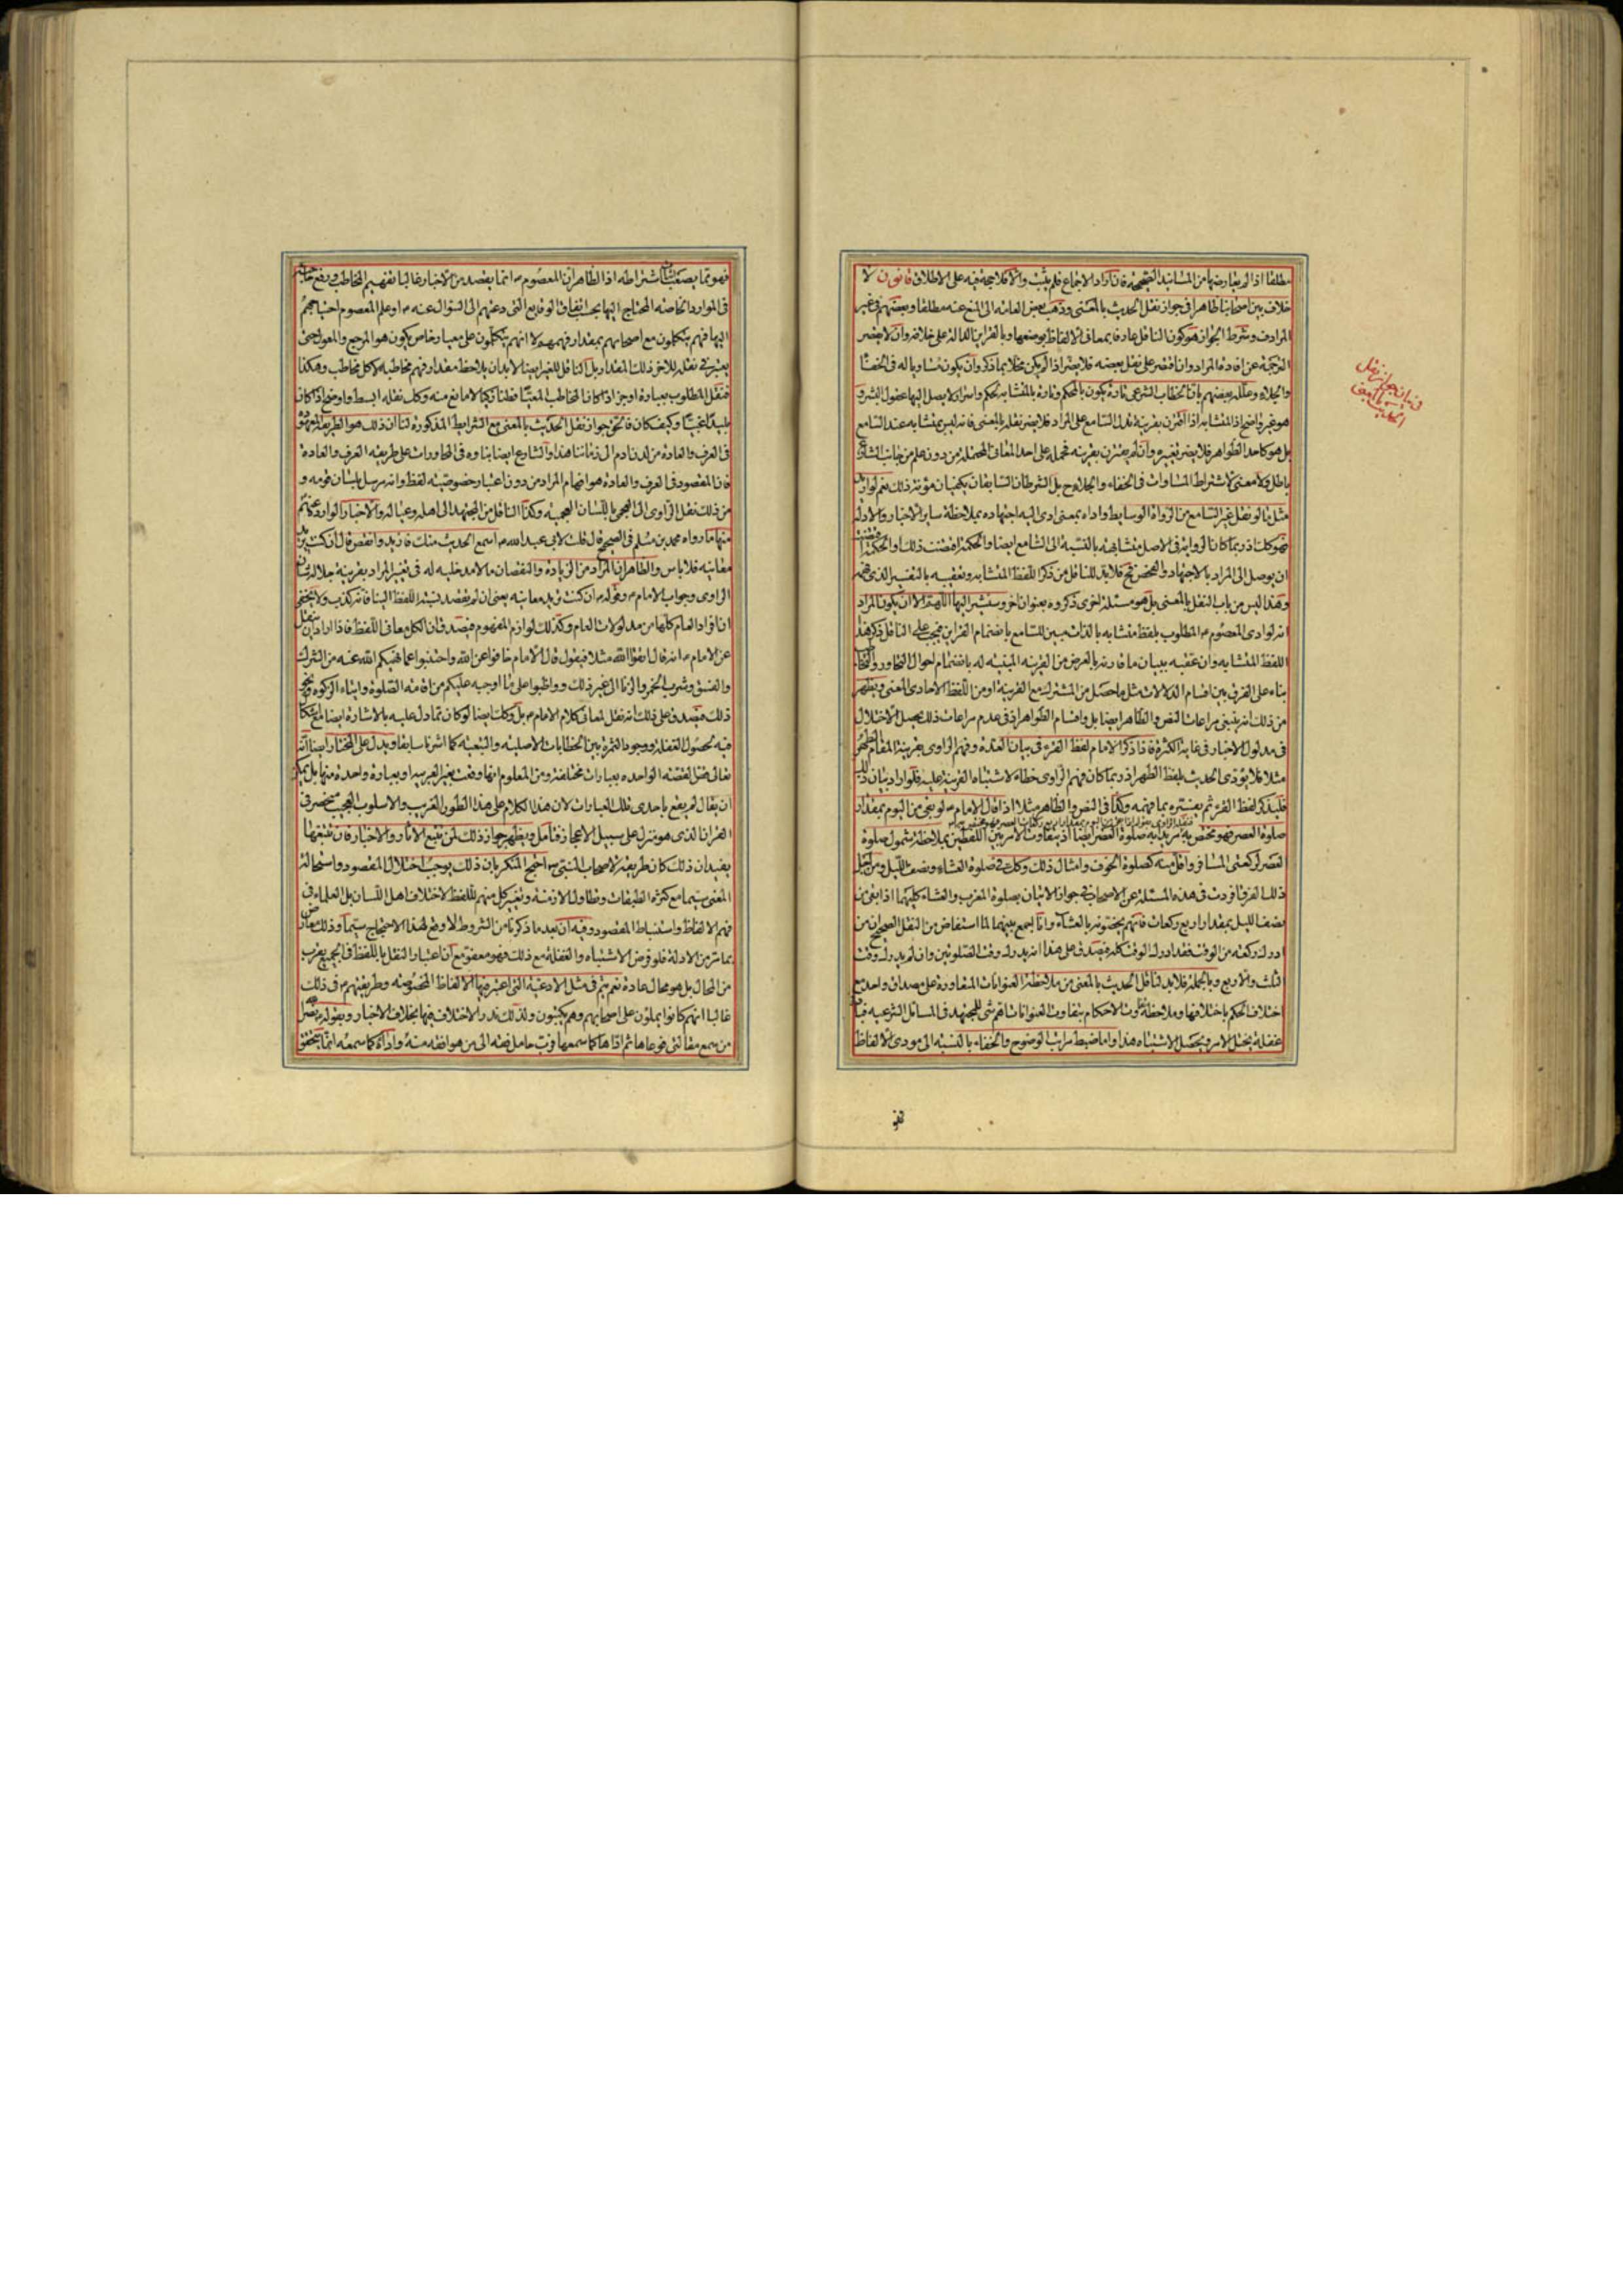 مطلقا اذا لم يعارضها من المسانيد الصحيحة فان اراد الاجماع فلم يثبت والا فلا حجة فيه على الاطلاق قانون لا
خلاف بين اصحابنا ظاهرا فى جواز نقل الحديث بالمعنى وذهب بعض العامة الى المنع عنه مطلقا وبعضهم فى غير
المرادف وشرط الجواز هو كون الناقل عارفا بمعانى الالفاظ بوضعها وبالقراين الدالة على خلافه وان لا يقصر
الترجمة عن افادة المراد وان اقتصر على نقل بعضه فلا يضر اذا لم يكن مخلا بما ذكر وان يكون مساويا له فى الخفاء
والجلاء وعلله بعضهم بان الخطاب الشرعى تارة يكون بالمحكم وتارة بالمتشابه لحكم واسرار لا يصل اليها عقول البشر و
هو غير واضح اذ المتشابه اذا اقترن بقرينة تدل السامع على المراد فلا يضر نقله بالمعنى فانه ليس بمتشابه عند السامع
بل هو كاحد الظواهر فلا يضر تغييره وان لم يقترن بقرينة فحمله على احد المعانى المحتملة من دون علم من جانب الشارع
باطل ولا معنى لاشتراط المساوات فى الخفاء والجلاء ح بل الشرطان السابقان يكفيان مؤنة ذلك نعم لو اريد
مثل ما لو نقل غير السامع من الرواة الوسايط واداه بمعنى ادى اليه اجتهاده بملاحظة ساير الاخبار والادلة
فهو كك اذ ربما كان الرواية فى الاصل متشابهة بالنسبة الى السامع ايضا والحكمة اقتضت ذلك او الحكمة اقتضت
ان يوصل الى المراد بالاجتهاد والفحص فح فلا بد للناقل من ذكر اللفظ المتشابه وتعقيبه بالتفسير الذى فهمه
وهذا ليس من باب النقل بالمعنى بل هو مسئلة اخرى ذكروه بعنوان اخر وسنشير اليها اللهم الا ان يكون المراد
انه لو ادى المعصوم ع المطلوب بلفظ متشابه بالذات مبين للسامع بانضمام القراين فيجب على الناقل ذكر هذا
اللفظ المتشابه وان عقبه ببيان ما قارنه بالعرض من القرينة المبينة له بانضمام احوال التحاور والتخاطب
بناء على الفرق بين اقسام الدلالات مثل ما حصل من المشترك مع القرينة او من اللفظ الاحادى المعنى ويظهر
من ذلك انه ينبغى مراعات النص والظاهر ايضا بل واقسام الظواهر اذ فى عدم مراعات ذلك يحصل الاختلال
فى مدلول الاخبار فى غاية الكثرة فاذا ذكر الامام لفظ القرء فى بيان العدة وفهم الراوى بقرينة المقام الطهر
مثلا فلا يؤدى الحديث بلفظ الطهر اذ ربما كان فهم الراوى خطاء لاشتباه القرينة عليه فلو اراد بيان ذلك
فليذكر لفظ القرء ثم يفسره بما فهمه وكذا فى النص والظاهر مثلا اذا قال الامام ع لو بقى من اليوم بمقدار
صلوة العصر فهو مختص به يريد به صلوة العصر ايضا اذ يتفاوت الامر بين اللفظين بملاحظة شمول صلوة
العصر لركعتى المسافر واقل منه كصلوة الخوف وامثال ذلك وكك فى صلوة العشاء ونصف الليل ومن اجل
ذلك الفرق افردت فى هذه المسئلة عن الاصحاب فى جواز الاتيان بصلوة المغرب والعشاء كليهما اذا بقى من
نصف الليل بمقدار اربع ركعات فانهم يخصونه بالعشاء وانا اجمع بينهما لما استفاض من النقل الصحيح ان من
ادرك ركعة من الوقت فقد ادرك الوقت كله فيصدق على هذا انه يدرك وقت الصلوتين وان لم يدرك وقت
الثلث والاربع وبالجملة فلا بد لناقل الحديث بالمعنى من ملاحظة العنوانات المتفاوتة على مصداق واحد مع
اختلاف الحكم باختلافها وملاحظة تفاوت الاحكام بتفاوت العنوانات اهم شئ للمجتهد فى المسائل الشرعية فباقل
غفلة يختل الامر ويحصل الاشتباه هذا واما ضبط مراتب الوضوح والخفاء بالنسبة الى مودى الالفاظ
فى بيان جواز نقل
الحديث بالمعنى
فهو
فهو مما يصعب اشتراطه اذ الظاهر ان المعصوم ع انما يقصد من الاخبار غالبا تفهيم المخاطب ورفع حاجته
فى الموارد الخاصة المحتاج اليها بحسب اتفاق الوقايع التى دعتهم الى السؤال عنه ع او علم المعصوم احتياجهم
اليها فهم يتكلمون مع اصحابهم بمقدار فهمهم لا انهم يتكلمون على معيار خاص يكون هو المرجع والمعول حتى
يعتبر فى نقله للاخر ذلك المقدار بل الناقل للغير ايضا لا بد ان يلاحظ مقدار فهم مخاطبه لا كل مخاطب وهكذا
فنقل المطلوب بعبارة اوجز اذا كان المخاطب المعين فطنا زكيا لا مانع منه وكك نقله ابسط واوضح اذا كان
بليدا غبيا وكيف كان فالحق جواز نقل الحديث بالمعنى مع الشرايط المذكورة لنا ان ذلك هو الطريقة المعهودة
فى العرف والعادة من لدن ادم الى زماننا هذا والشارع ايضا بناوه فى المحاورات على طريقة العرف والعادة
فان المقصود فى العرف والعادة هو افهام المراد من دون اعتبار خصوصية لفظ وانه يرسل بلسان قومه و
من ذلك نقل الراوى الى العجمى باللسان العجمية وكذا الناقل من المجتهد الى اهله وعياله والاخبار الواردة عنهم
منها ما رواه محمد بن مسلم فى الصحيح قال قلت لابى عبد الله ع اسمع الحديث منك فازيد وانقص قال ان كنت تريد
معانيه فلا باس والظاهر ان المراد من الزيادة والنقصان ما لا مدخلية له فى تغيير المراد بقرينة جلالة شان
الراوى وجواب الامام ع وقوله ع ان كنت تريد معانيه يعنى ان لم يقصد نسبة اللفظ الينا فانه كذب ولا يخفى
ان افراد العام كلها من مدلولات العام وكذلك لوازم المفهوم فيصدق ان الكل معانى اللفظ فاذا اراد ان ينقل
عن الامام ع انه قال اتقوا الله مثلا فيقول قال الامام خافوا عن الله واجتنبوا عما نهيكم الله عنه من الشرك
والفسق وشرب الخمر والزنا الى غير ذلك وواظبوا على ما اوجبه عليكم من اقامة الصلوة وايتاء الزكوة ونحو
ذلك فيصدق على ذلك انه نقل لمعانى كلام الامام ع بل وكك ايضا لو كان مما دل عليه بالاشارة ايضا مع اشكال
فيه لحصول الغفلة ووجود الثمرة بين الخطابات الاصلية والتبعية كما اشرنا سابقا ويدل على المختار ايضا انه
تعالى نقل القصة الواحدة بعبارات مختلفة ومن المعلوم انها وقعت بغير العربية او بعبارة واحدة منها بل يمكن
ان يقال لم يقع باحدى تلك العبارات لان هذا الكلام على هذا الطور الغريب والاسلوب العجيب منحصر فى
القران الذى هو منزل على سبيل الاعجاز فتامل ويظهر جواز ذلك لمن تتبع الاثار والاخبار فان تتبعها
يفيد ان ذلك كان طريقة لاصحاب النبى ص احتج المنكر بان ذلك يوجب اختلال المقصود واستحالة
المعنى سيما مع كثرة الطبقات وتطاول الازمنة وتغيير كل منهم اللفظ لاختلاف اهل اللسان بل العلماء فى
فهم الالفاظ واستنباط المقصود وفيه ان بعد ما ذكرنا من الشروط لا وقع لهذا الاحتجاج سيما وذلك معارض
بما مر من الادلة فلو فرض الاشتباه والغفلة مع ذلك فهو معفو مع ان اعتبار النقل باللفظ فى الجميع يقرب
من المحال بل هو محال عادة نعم يتم فى مثل الادعية التى اعتبر فيها الالفاظ المخصوصة وطريقتهم ع فى ذلك
غالبا انهم كانوا يملون على اصحابهم وهم يكتبون ولذلك ندر الاختلاف فيها بخلاف الاخبار وبقوله ص نضر الله
من سمع مقالتى فوعاها ثم اداها كما سمعها فرب حامل فقه الى من هو افقه منه واداؤه كما سمعه انما يتحقق